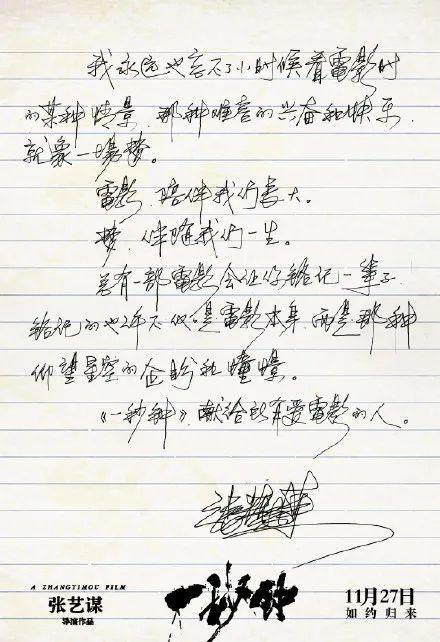 我永远也忘不了小时候看電影时
的某种情景,那种难言的兴奋和快乐,
就象一場梦。
電影,陪伴我们長大。
梦,伴隨我们一生。
总有一部電影会让你銘记一辈子,
銘记的也许不仅是電影本身,而是那种
仰望星空的企盼和憧憬。
《一秒钟》,献给所有爱電影的人。
张艺谋
A ZHANGYIMOU FILM
张艺谋
导演作品
一秒钟
11月27日
如约归来